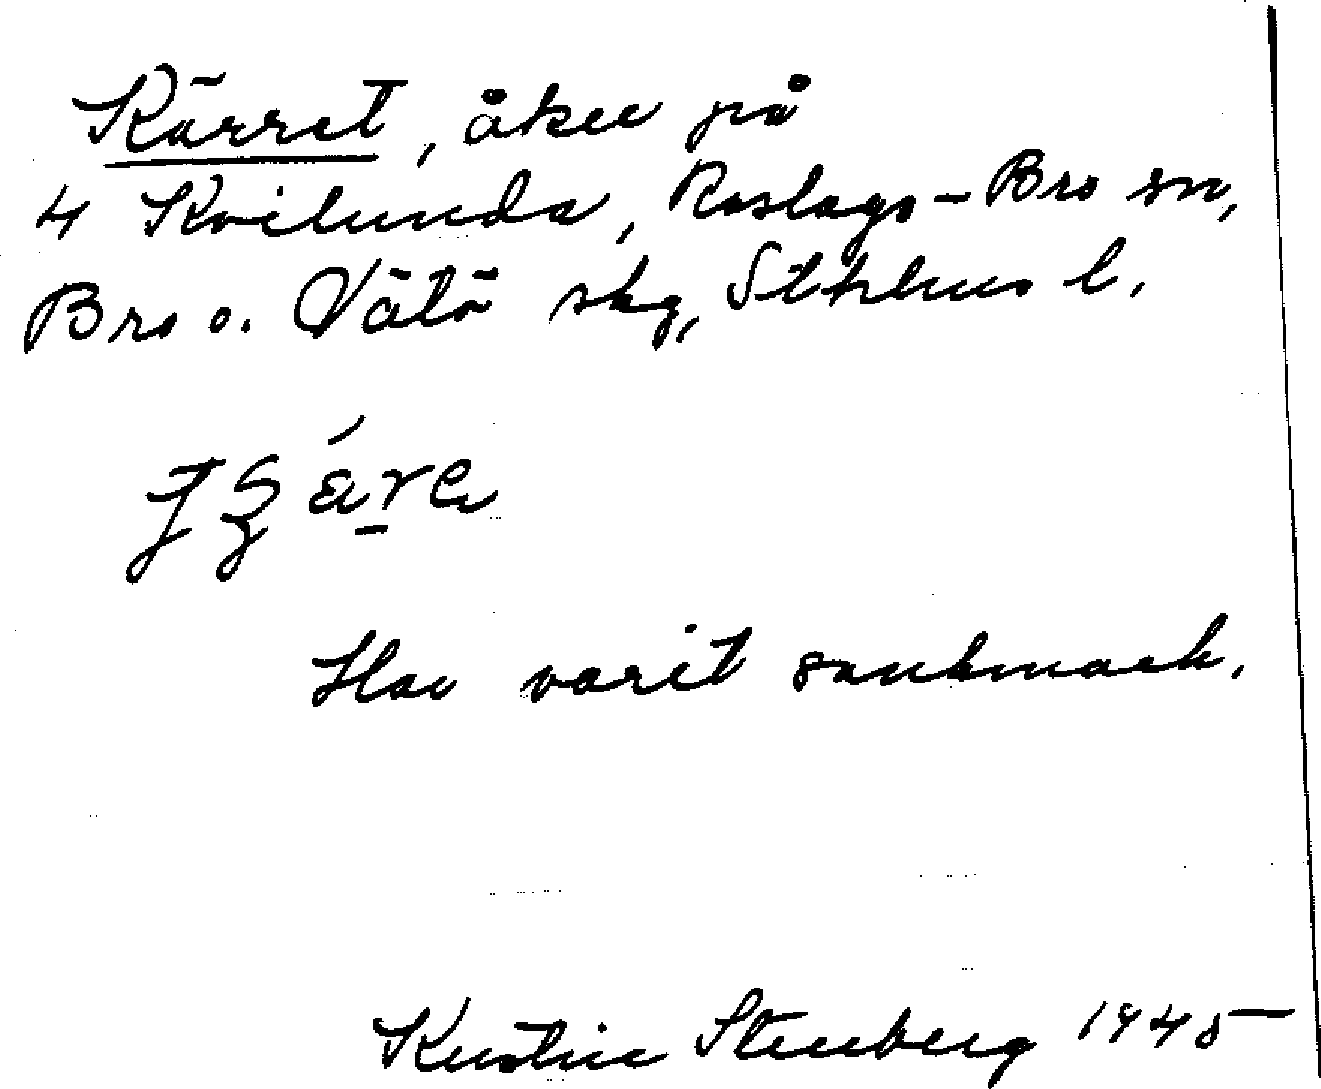 Kärret, åker på
4 Kvilunda, Roslags-Bro sn,
Bro o. Vätö skg, Sthlms l.
Har varit sankmark.
Kerstin Stenberg 1945